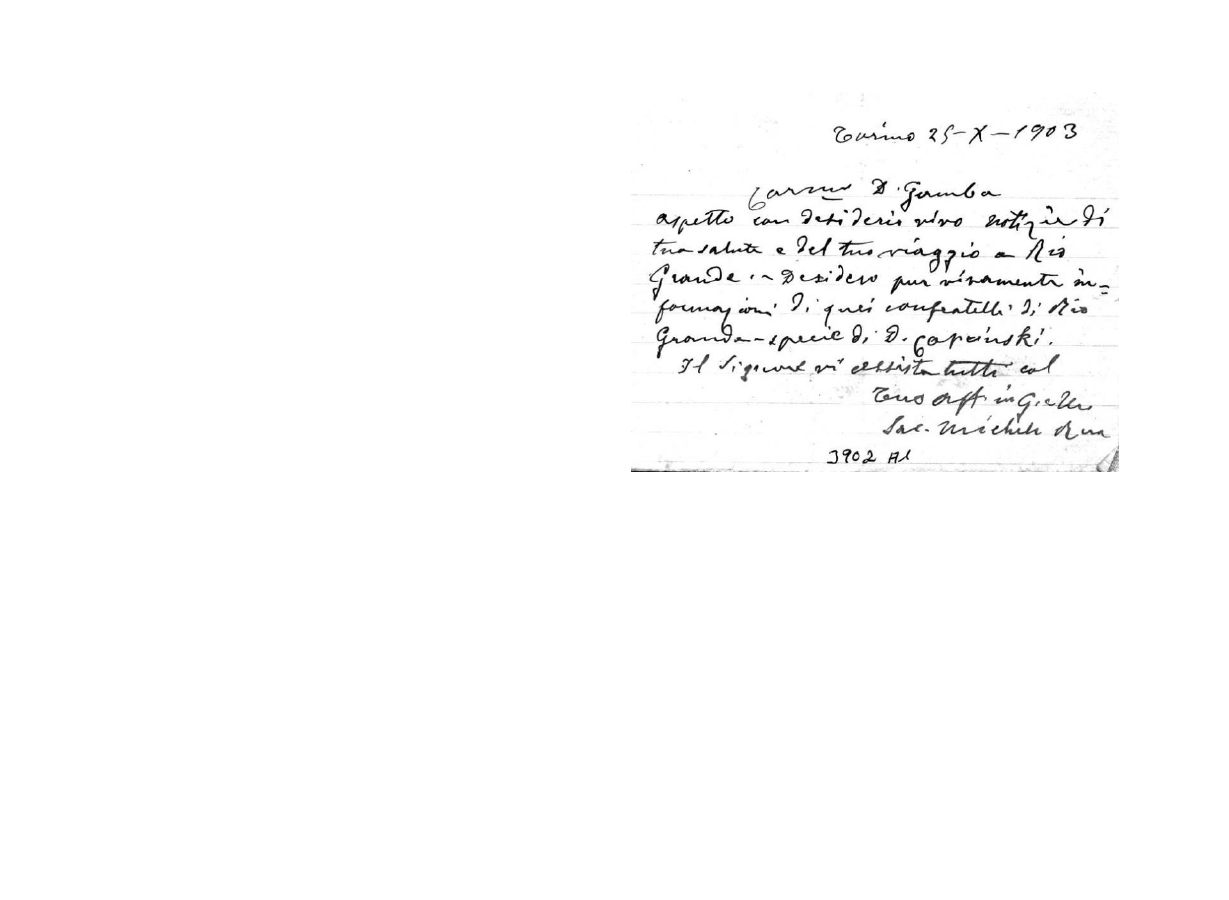 Torino 25-X-1903
Carmo D. Gamba
aspetto con desiderio vivo notizie di
tua salute e del tuo viaggio a Rio
Grande. - Desidero pur vivamente in=
formazioni di quei confratelli di Rio
Grande - specie di D.
Il Signore vi assista tutti col
Tuo aff. in G. e M.
Sac. Michele Rua
3902 Al